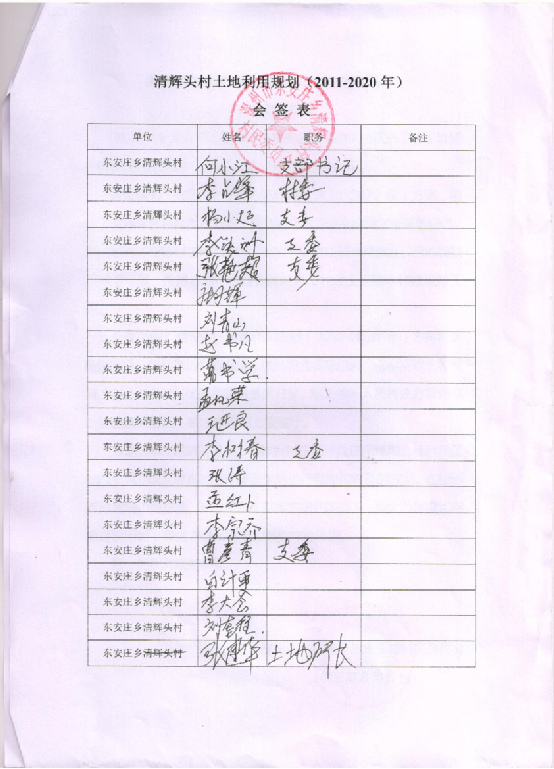 清辉头村土地利用规划（2011-2020 年）
会 签 表
单位 姓名 职务 备注
东安庄乡清辉头村 何小江 支部书记
东安庄乡清辉头村 李占辉 村委
东安庄乡清辉头村 杨小起 支委
东安庄乡清辉头村 李 支委
东安庄乡清辉头村 张艳超 支委
东安庄乡清辉头村
东安庄乡清辉头村 刘青山
东安庄乡清辉头村 赵书凡
东安庄乡清辉头村 书学
东安庄乡清辉头村 孟 荣
东安庄乡清辉头村 王进良
东安庄乡清辉头村 李树春 支委
东安庄乡清辉头村 张涛
东安庄乡清辉头村 孟红卜
东安庄乡清辉头村 李宗乔
东安庄乡清辉头村 曹彦青 支委
东安庄乡清辉头村 白计军
东安庄乡清辉头村 李大会
东安庄乡清辉头村 刘
东安庄乡清辉头村 张建华 土地所长